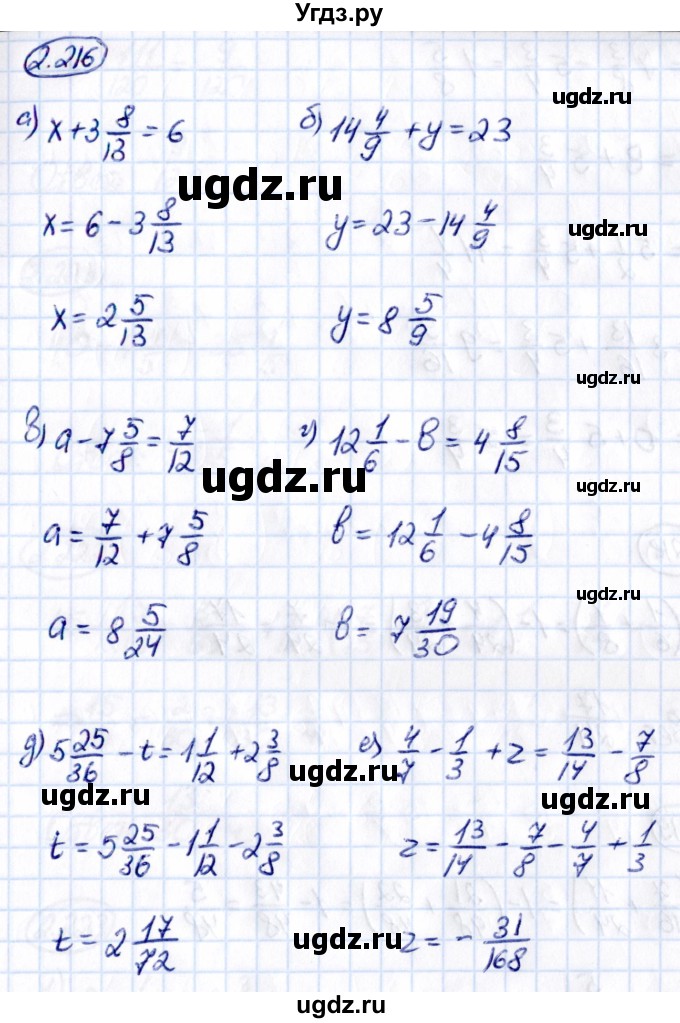 Угдз.ру
2.216
ugdz.ru
а) x + 3 8/13 = 6 б) 14 4/9 + y = 23
ugdz.ru
x = 6 - 3 8/13 y = 23 - 14 4/9
ugdz.ru
x = 2 5/13 y = 8 5/9
ugdz.ru
в) a - 7 5/8 = 7/12 г) 12 1/6 - в = 4 8/15
ugdz.ru
a = 7/12 + 7 5/8 в = 12 1/6 - 4 8/15
ugdz.ru
a = 8 5/24 в = 7 19/30
ugdz.ru
д) 5 25/36 - t = 1 1/12 + 2 3/8 е) 4/7 - 1/3 + z = 13/14 - 7/8
ugdz.ru
ugdz.ru ugdz.ru
t = 5 25/36 - 1 1/12 - 2 3/8 z = 13/14 - 7/8 - 4/7 + 1/3
t = 2 17/72 z = - 31/168
ugdz.ru
ugdz.ru